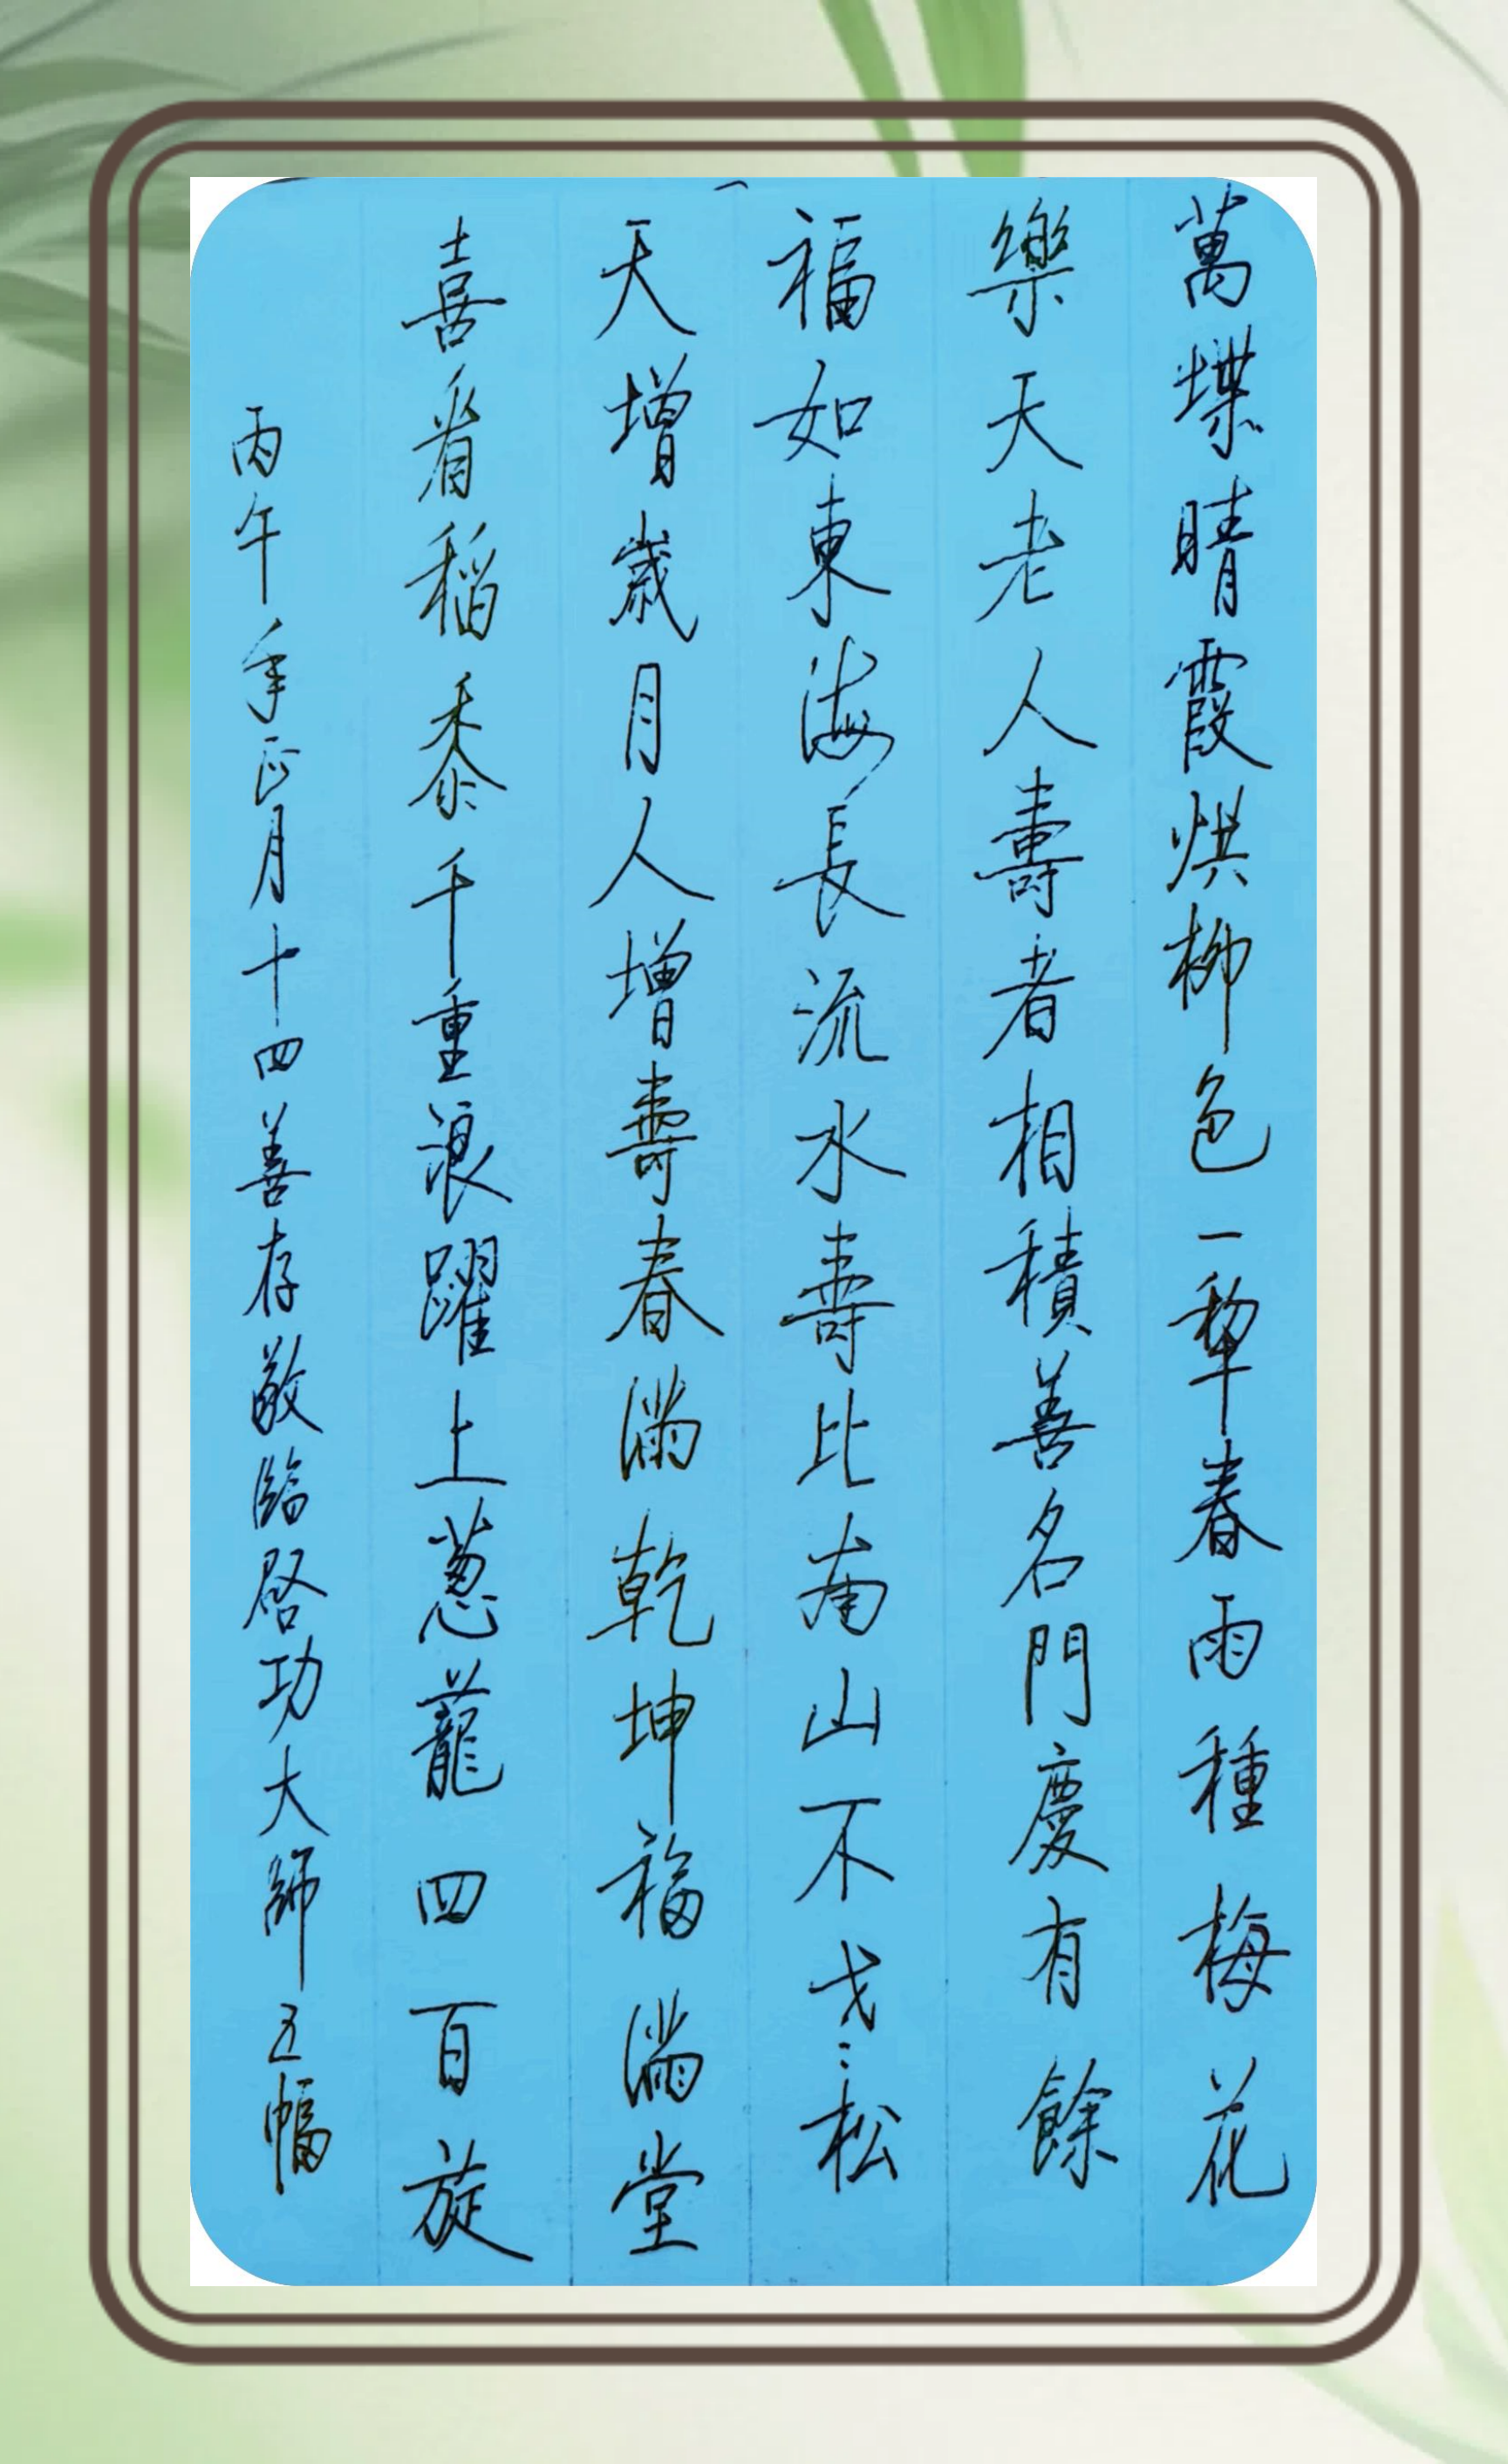 萬堞晴霞烘柳色一犂春雨種梅花
樂天老人壽者相積善名門慶有餘
福如東海長流水壽比南山不松
天增歲月人增壽春滿乾坤福滿堂
喜看稻黍千重浪躍上葱蘢四百旋
丙午年正月十四善存敬臨啓功大師五幅